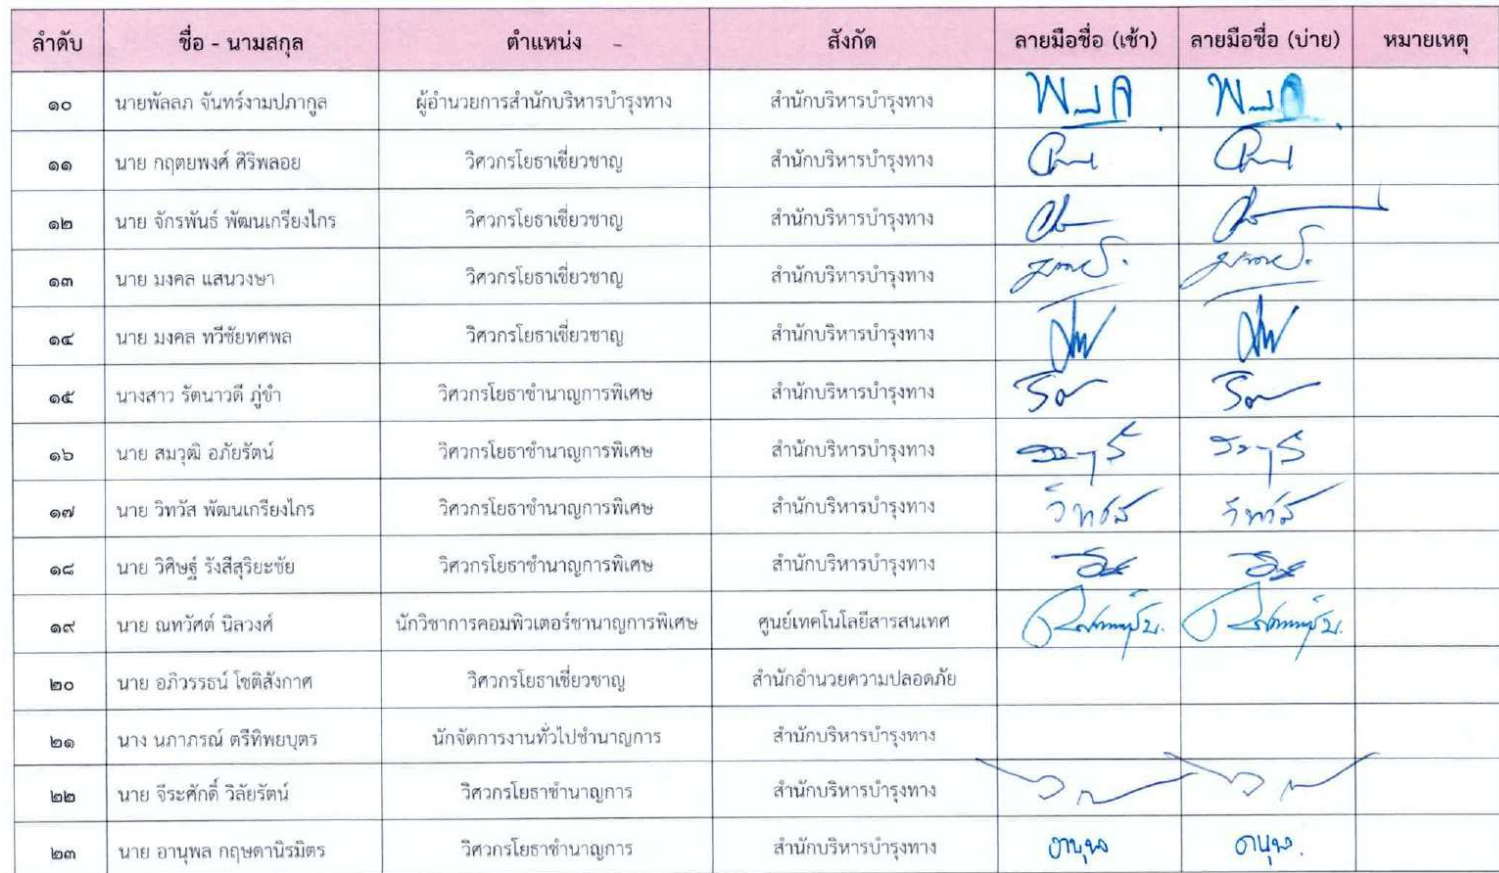 ลำดับ ชื่อ - นามสกุล ตำแหน่ง - สังกัด ลายมือชื่อ (เช้า) ลายมือชื่อ (บ่าย) หมายเหตุ
๑๐ นายพัลลภ จันทร์งามปภากูล ผู้อำนวยการสำนักบริหารบำรุงทาง สำนักบริหารบำรุงทาง
๑๑ นาย กฤตยพงศ์ ศิริพลอย วิศวกรโยธาเชี่ยวชาญ สำนักบริหารบำรุงทาง
๑๒ นาย จักรพันธ์ พัฒนเกรียงไกร วิศวกรโยธาเชี่ยวชาญ สำนักบริหารบำรุงทาง
๑๓ นาย มงคล แสนวงษา วิศวกรโยธาเชี่ยวชาญ สำนักบริหารบำรุงทาง
๑๔ นาย มงคล ทวีชัยทศพล วิศวกรโยธาเชี่ยวชาญ สำนักบริหารบำรุงทาง
๑๕ นางสาว รัตนาวดี ภู่ขำ วิศวกรโยธาชำนาญการพิเศษ สำนักบริหารบำรุงทาง
๑๖ นาย สมวุฒิ อภัยรัตน์ วิศวกรโยธาชำนาญการพิเศษ สำนักบริหารบำรุงทาง
๑๗ นาย วิทวัส พัฒนเกรียงไกร วิศวกรโยธาชำนาญการพิเศษ สำนักบริหารบำรุงทาง วิทวัส วิทวัส
๑๘ นาย วิศิษฐ์ รังสีสุริยะชัย วิศวกรโยธาชำนาญการพิเศษ สำนักบริหารบำรุงทาง
๑๙ นาย ณทวัศต์ นิลวงศ์ นักวิชาการคอมพิวเตอร์ชานาญการพิเศษ ศูนย์เทคโนโลยีสารสนเทศ
๒๐ นาย อภิวรรธน์ โชติสังกาศ วิศวกรโยธาเชี่ยวชาญ สำนักอำนวยความปลอดภัย
๒๑ นาง นภาภรณ์ ตรีทิพยบุตร นักจัดการงานทั่วไปชำนาญการ สำนักบริหารบำรุงทาง
๒๒ นาย จีระศักดิ์ วิลัยรัตน์ วิศวกรโยธาชำนาญการ สำนักบริหารบำรุงทาง
๒๓ นาย อานุพล กฤษดานิรมิตร วิศวกรโยธาชำนาญการ สำนักบริหารบำรุงทาง อานุพล